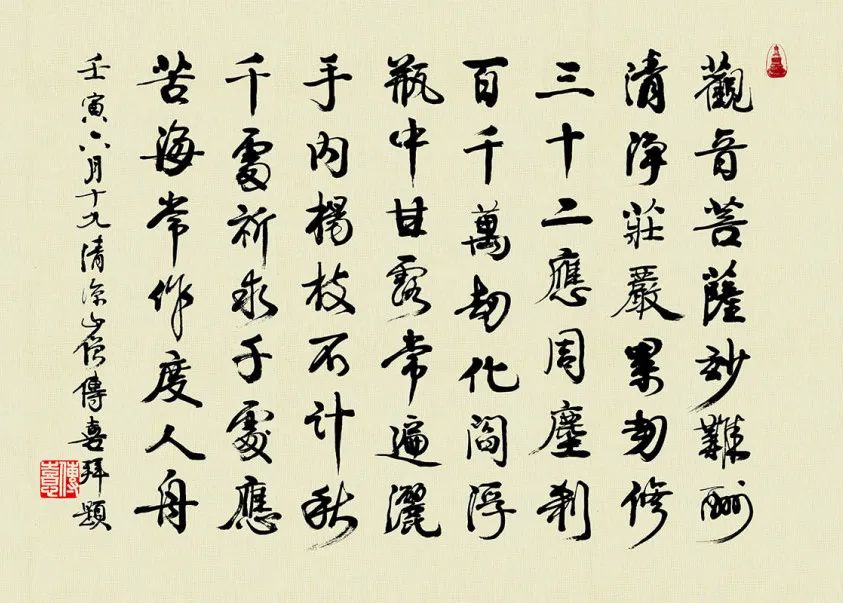 觀音菩薩妙難酬
清淨莊嚴累劫修
三十二應周塵剎
百千萬劫化閻浮
瓶中甘露常遍灑
手內楊枝不計秋
千處祈求千處應
苦海常作度人舟
壬寅六月十九清涼山僧傳喜拜題
傳喜